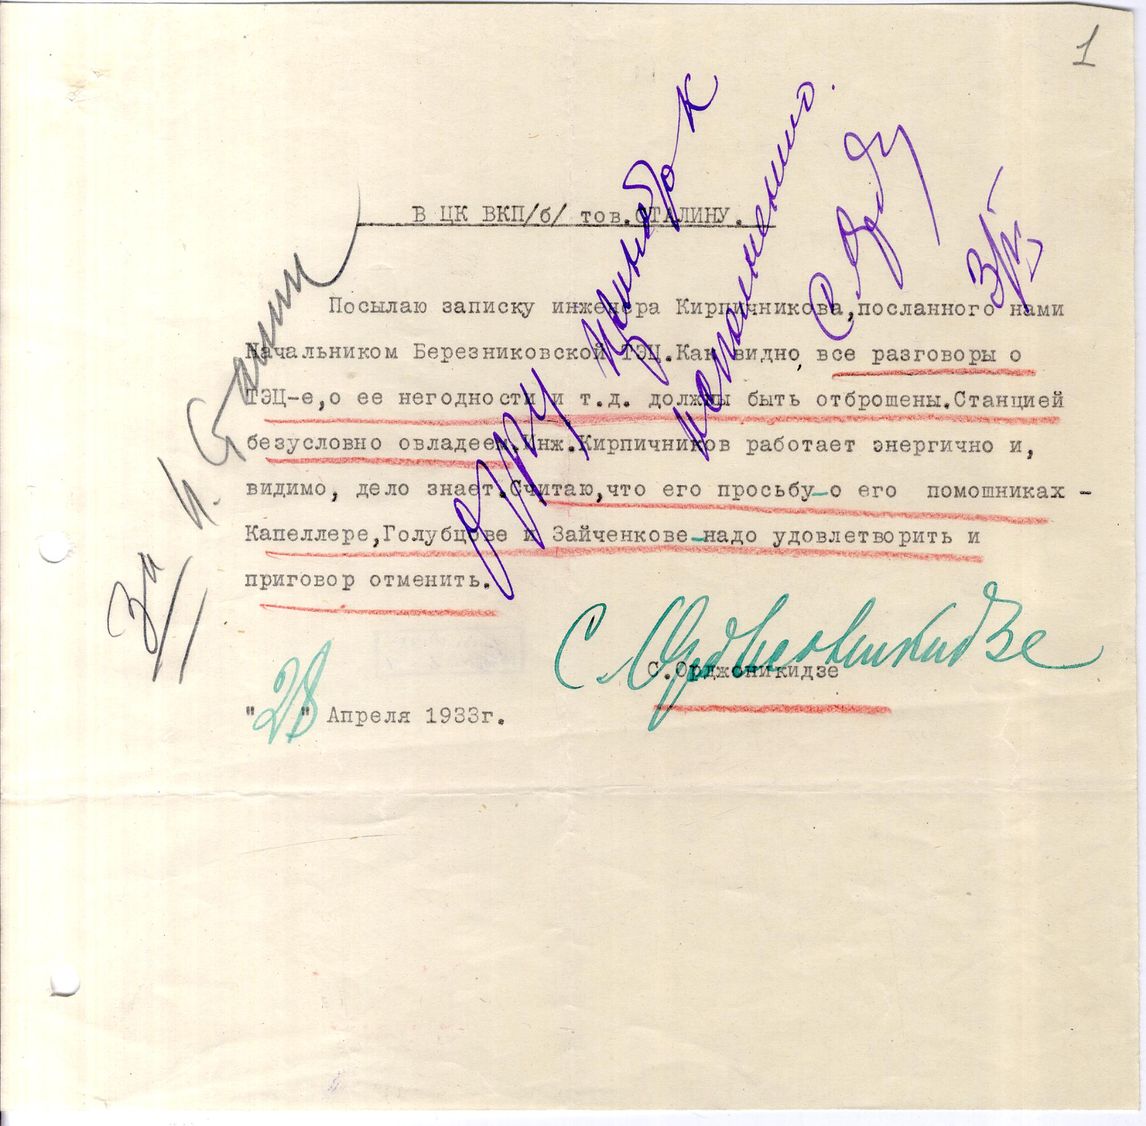 1
В ЦК ВКП/б/ тов.СТАЛИНУ.
Посылаю записку инженера Кирпичникова,посланного нами
Начальником Березниковской ТЭЦ.Как видно, все разговоры о
ТЭЦ-е,о ее негодности и т.д. должны быть отброшены.Станцией
безусловно овладеем.Инж.Кирпичников работает энергично и,
видимо, дело знает.Считаю,что его просьбу о его помошниках -
Капеллере,Голубцове и Зайченкове надо удовлетворить и
приговор отменить.
С. Орджоникидзе
С.Орджоникидзе
"28" Апреля 1933г.
За
И. Сталин